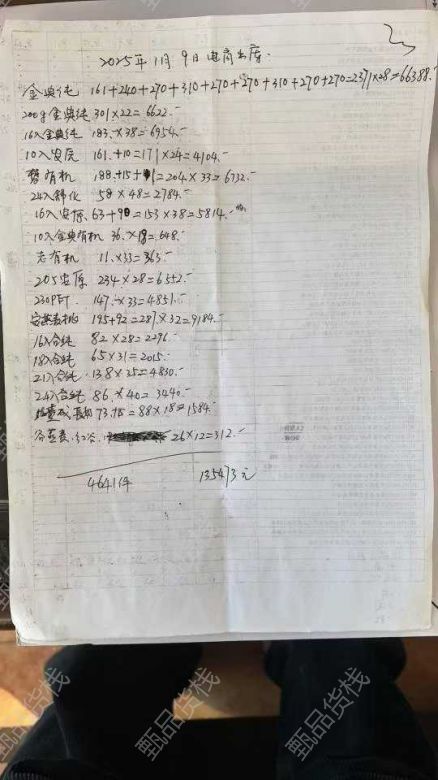 2025年1月9日电商出库.
金典纯 161+240+270+310+270+270+310+270+270=2371×28=66388.-
200g金典纯 301×22=6622.-
16入金典纯 183.×38=6954.-
10入安辰 161.+10=171×24=4104.-
有机 188.+15+1=204×33=6732.-
24入舒化 58×48=2784.-
16入安 63+90=153×38=5814.-
10入金典有机 36.×18=648.-
有机 11.×33=363.-
205安 234×28=6552.-
230PET. 147.×33=4851.-
195+92=287×32=9184.-
16入合纯 82×28=2296.-
18入合纯 65×31=2015.-
21入合纯 138×35=4830.-
24入合纯 86.×40=3440.-
73.15=88×18=1584.-
26×12=312.-
4641件 135473元
甄品货栈
甄品货栈
甄品货栈
甄品货栈
甄品货栈
甄品货栈